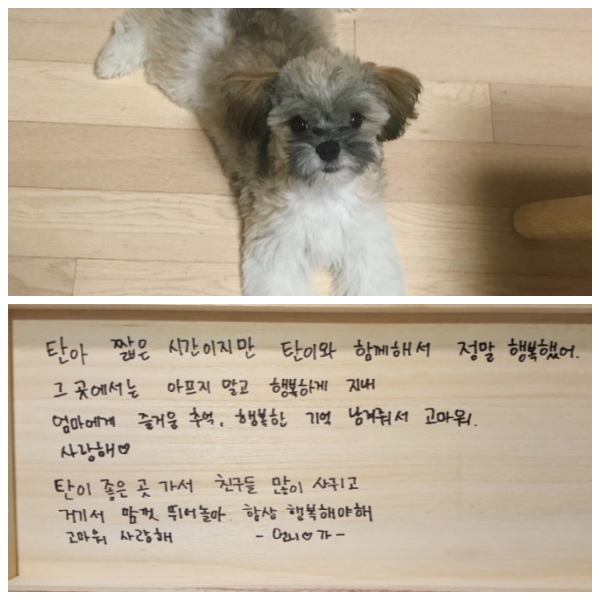 탄아 짧은 시간이지만 탄이와 함께해서 정말 행복했어.
그 곳에서는 아프지 말고 행복하게 지내
엄마에게 즐거운 추억, 행복한 기억 남겨줘서 고마워.
사랑해♡
탄이 좋은 곳 가서 친구들 많이 사귀고
거기서 맘껏 뛰어놀아 항상 행복해야해
고마워 사랑해 - 언니♡가 -